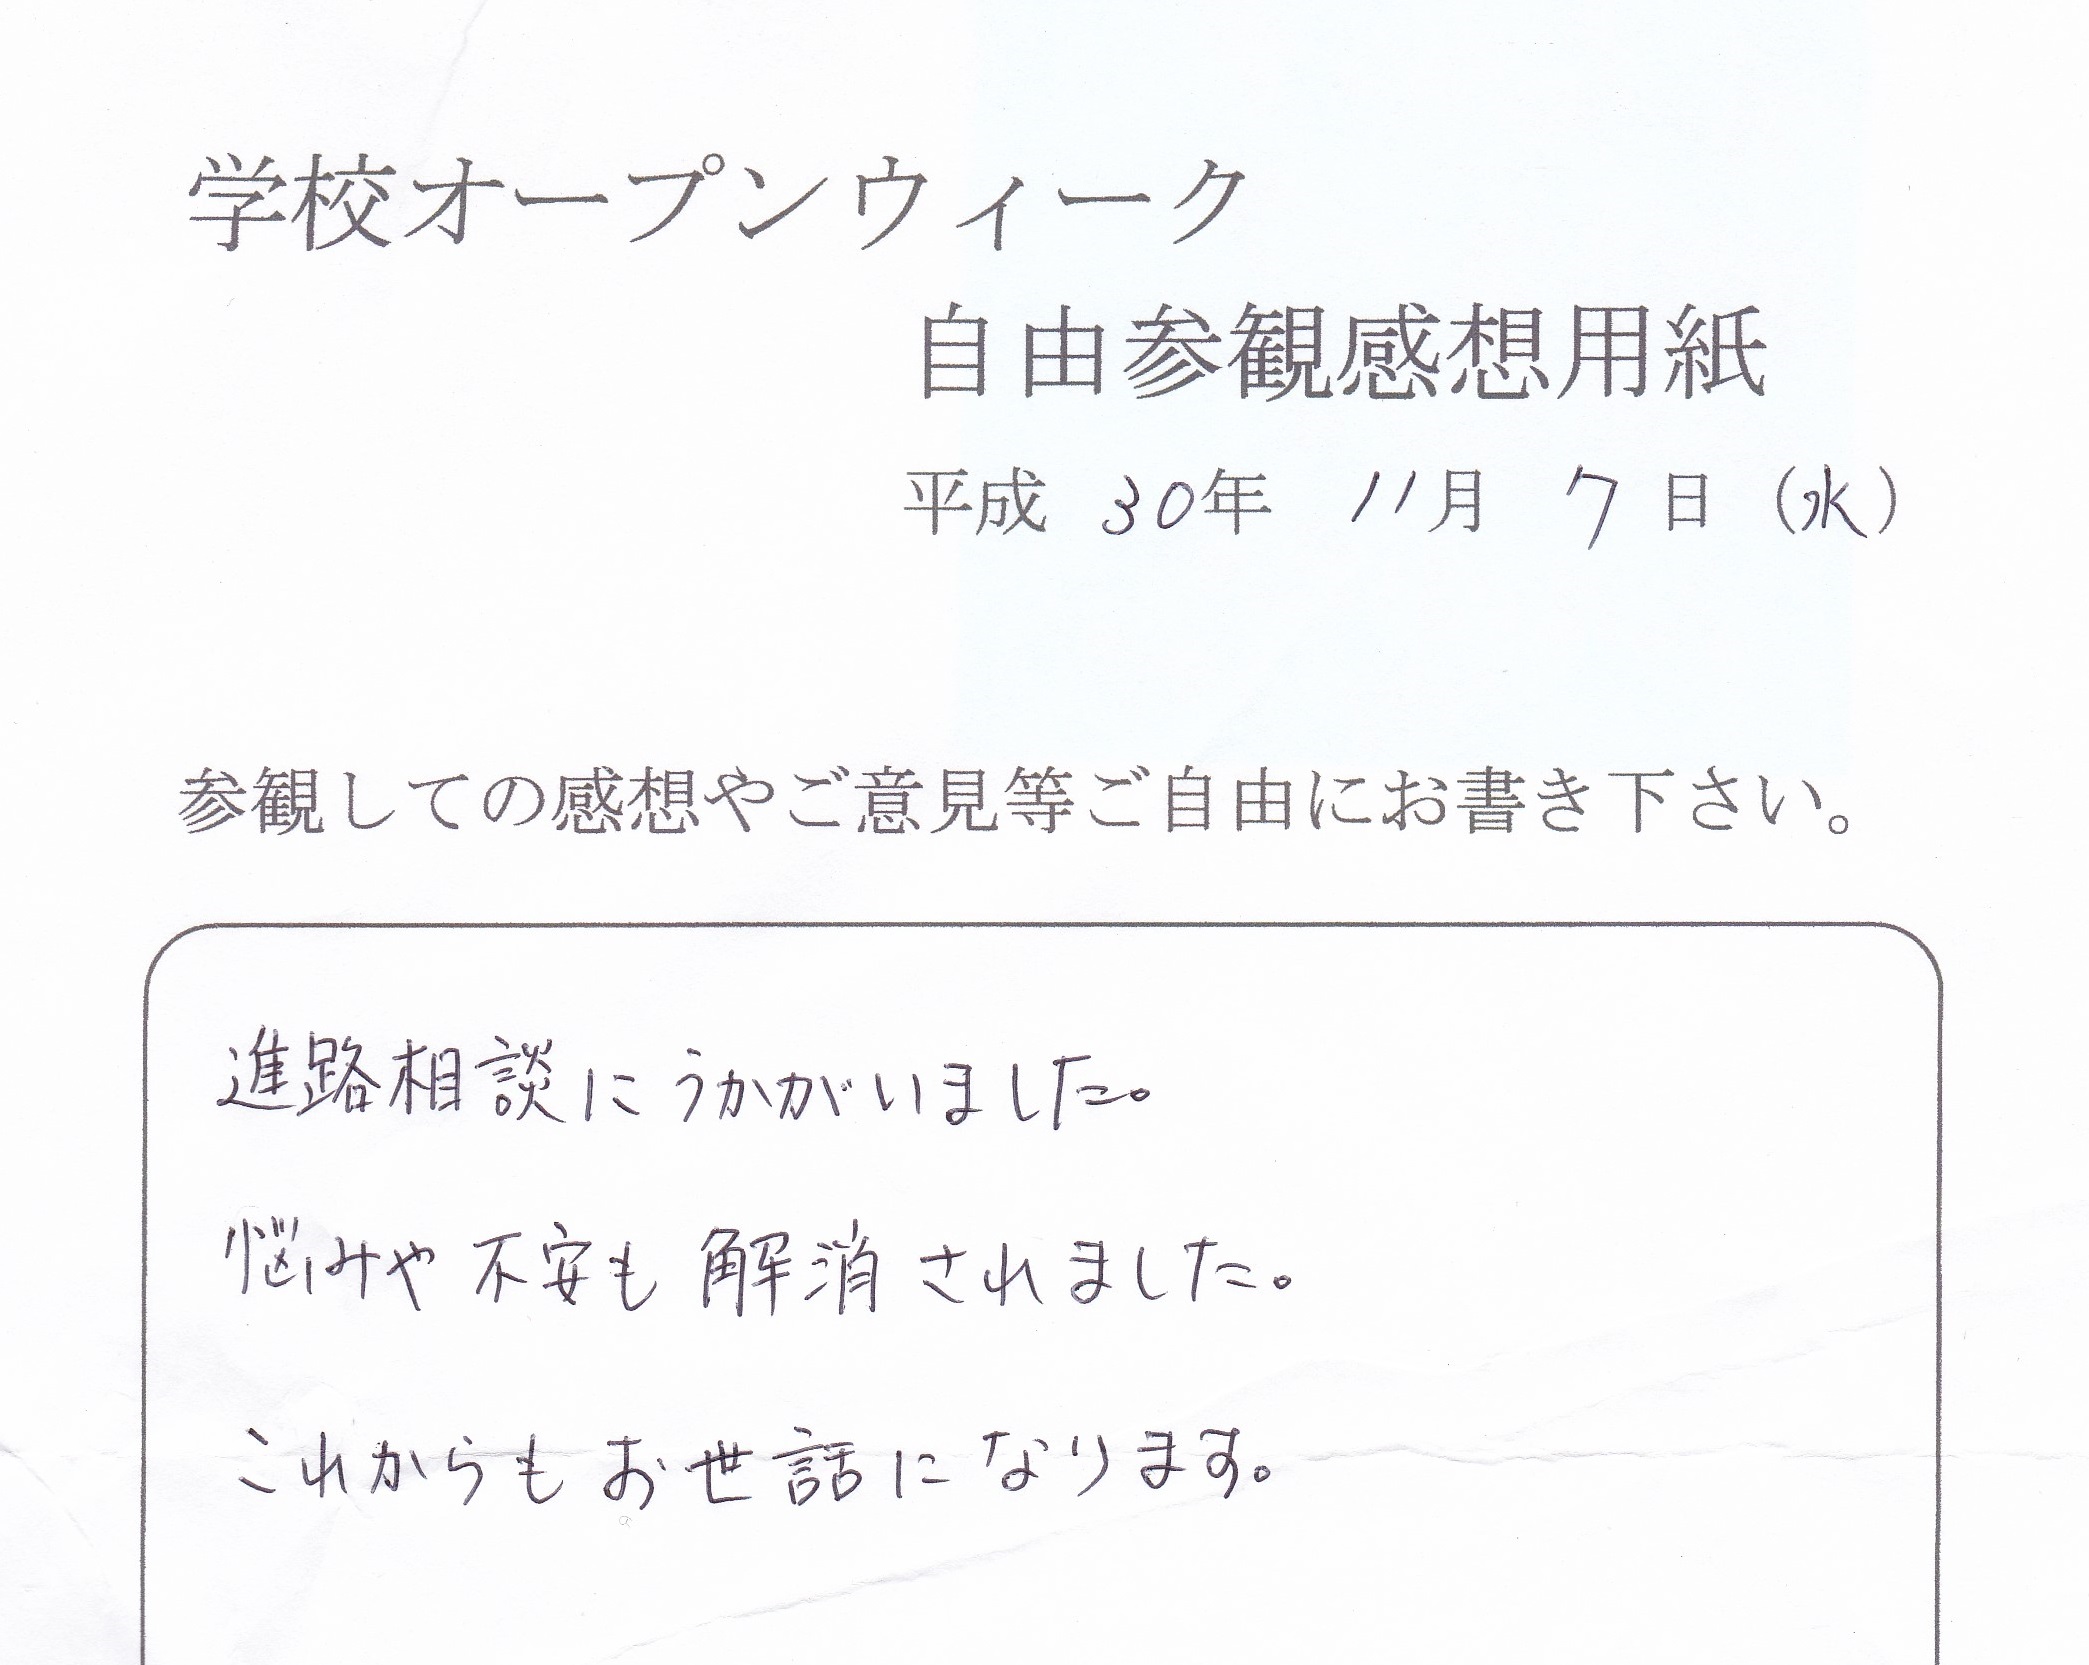 学校オープンウィーク
自由参観感想用紙
平成 30年 11月 7日 (水)
参観しての感想やご意見等ご自由にお書き下さい。
進路相談にうかがいました。
悩みや不安も解消されました。
これからもお世話になります。